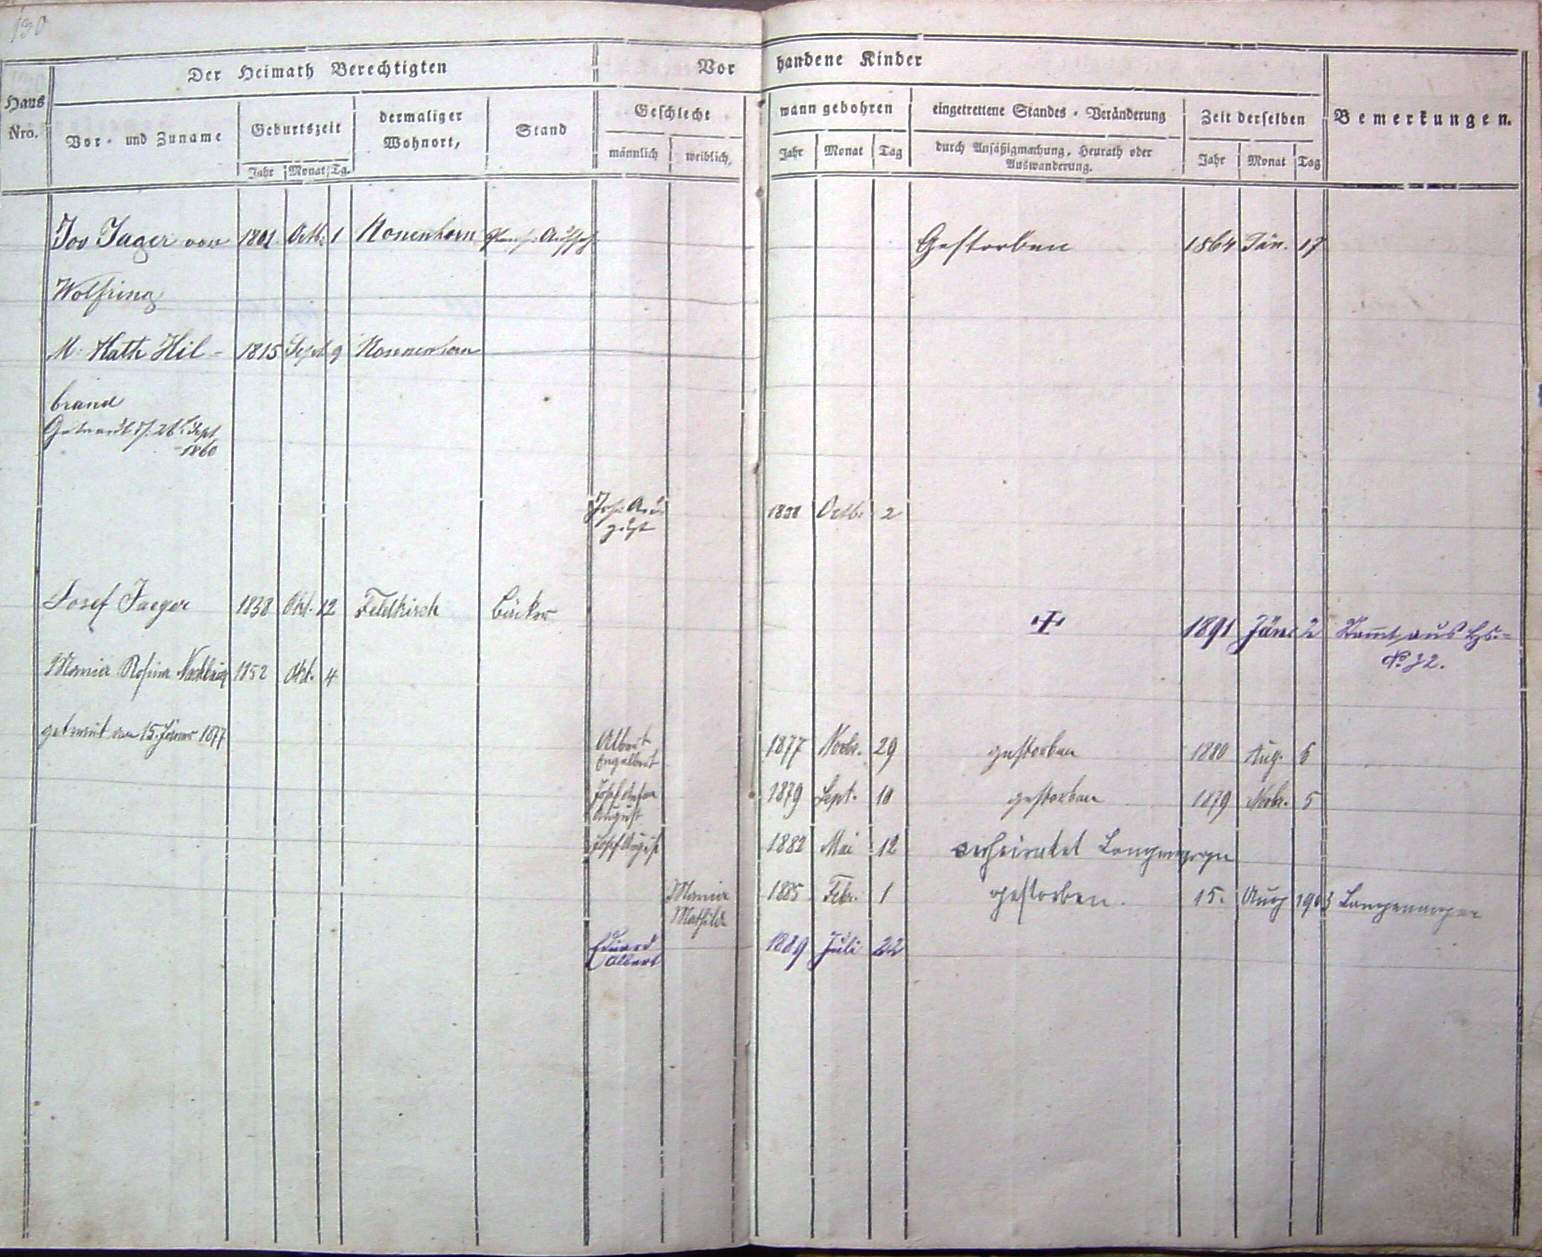 130
Der Heimath Berechtigten Vorhandene Kinder
Haus Nro. Vor- und Zuname Geburtszeit dermaliger Wohnort, Stand Geschlecht wann gebohren eingetrettene Standes-Veränderung Zeit derselben Bemerkungen.
Jahr Monat Tg. männlich weiblich, Jahr Monat Tag durch Ansäßigmachung, Heurath oder Auswanderung. Jahr Monat Tag
Jos Jager von 1801 Octb. 1 Nonenhorn Gestorben 1864 Jän. 17
Wolfring
M. Kath Hil- 1815 Sept 9 Nonnenhorn
brand
Getraut d. 26t. Sept
1860
Jos. Au- 1838 Octb. 2
gust
Josef Jaeger 1838 Okt. 12 Feldkirch Bäcker + 1891 Jän. 2 Kommt aus Hs.-
No. 32.
Maria Rosina 1852 Okt. 4
getraut den 15. Jänner 1877
Albert 1877 Novbr. 29 gestorben 1880 Aug. 6
Engelbert
Josef 1879 Sept. 10 gestorben 1879 Novbr. 5
August
Josef August 1882 Mai 12 verheiratet Langenargen
Maria 1885 Febr. 1 gestorben. 15. Aug 1903 Langenargen
Mathilde
Eduard 1889 Juli 22
Albert